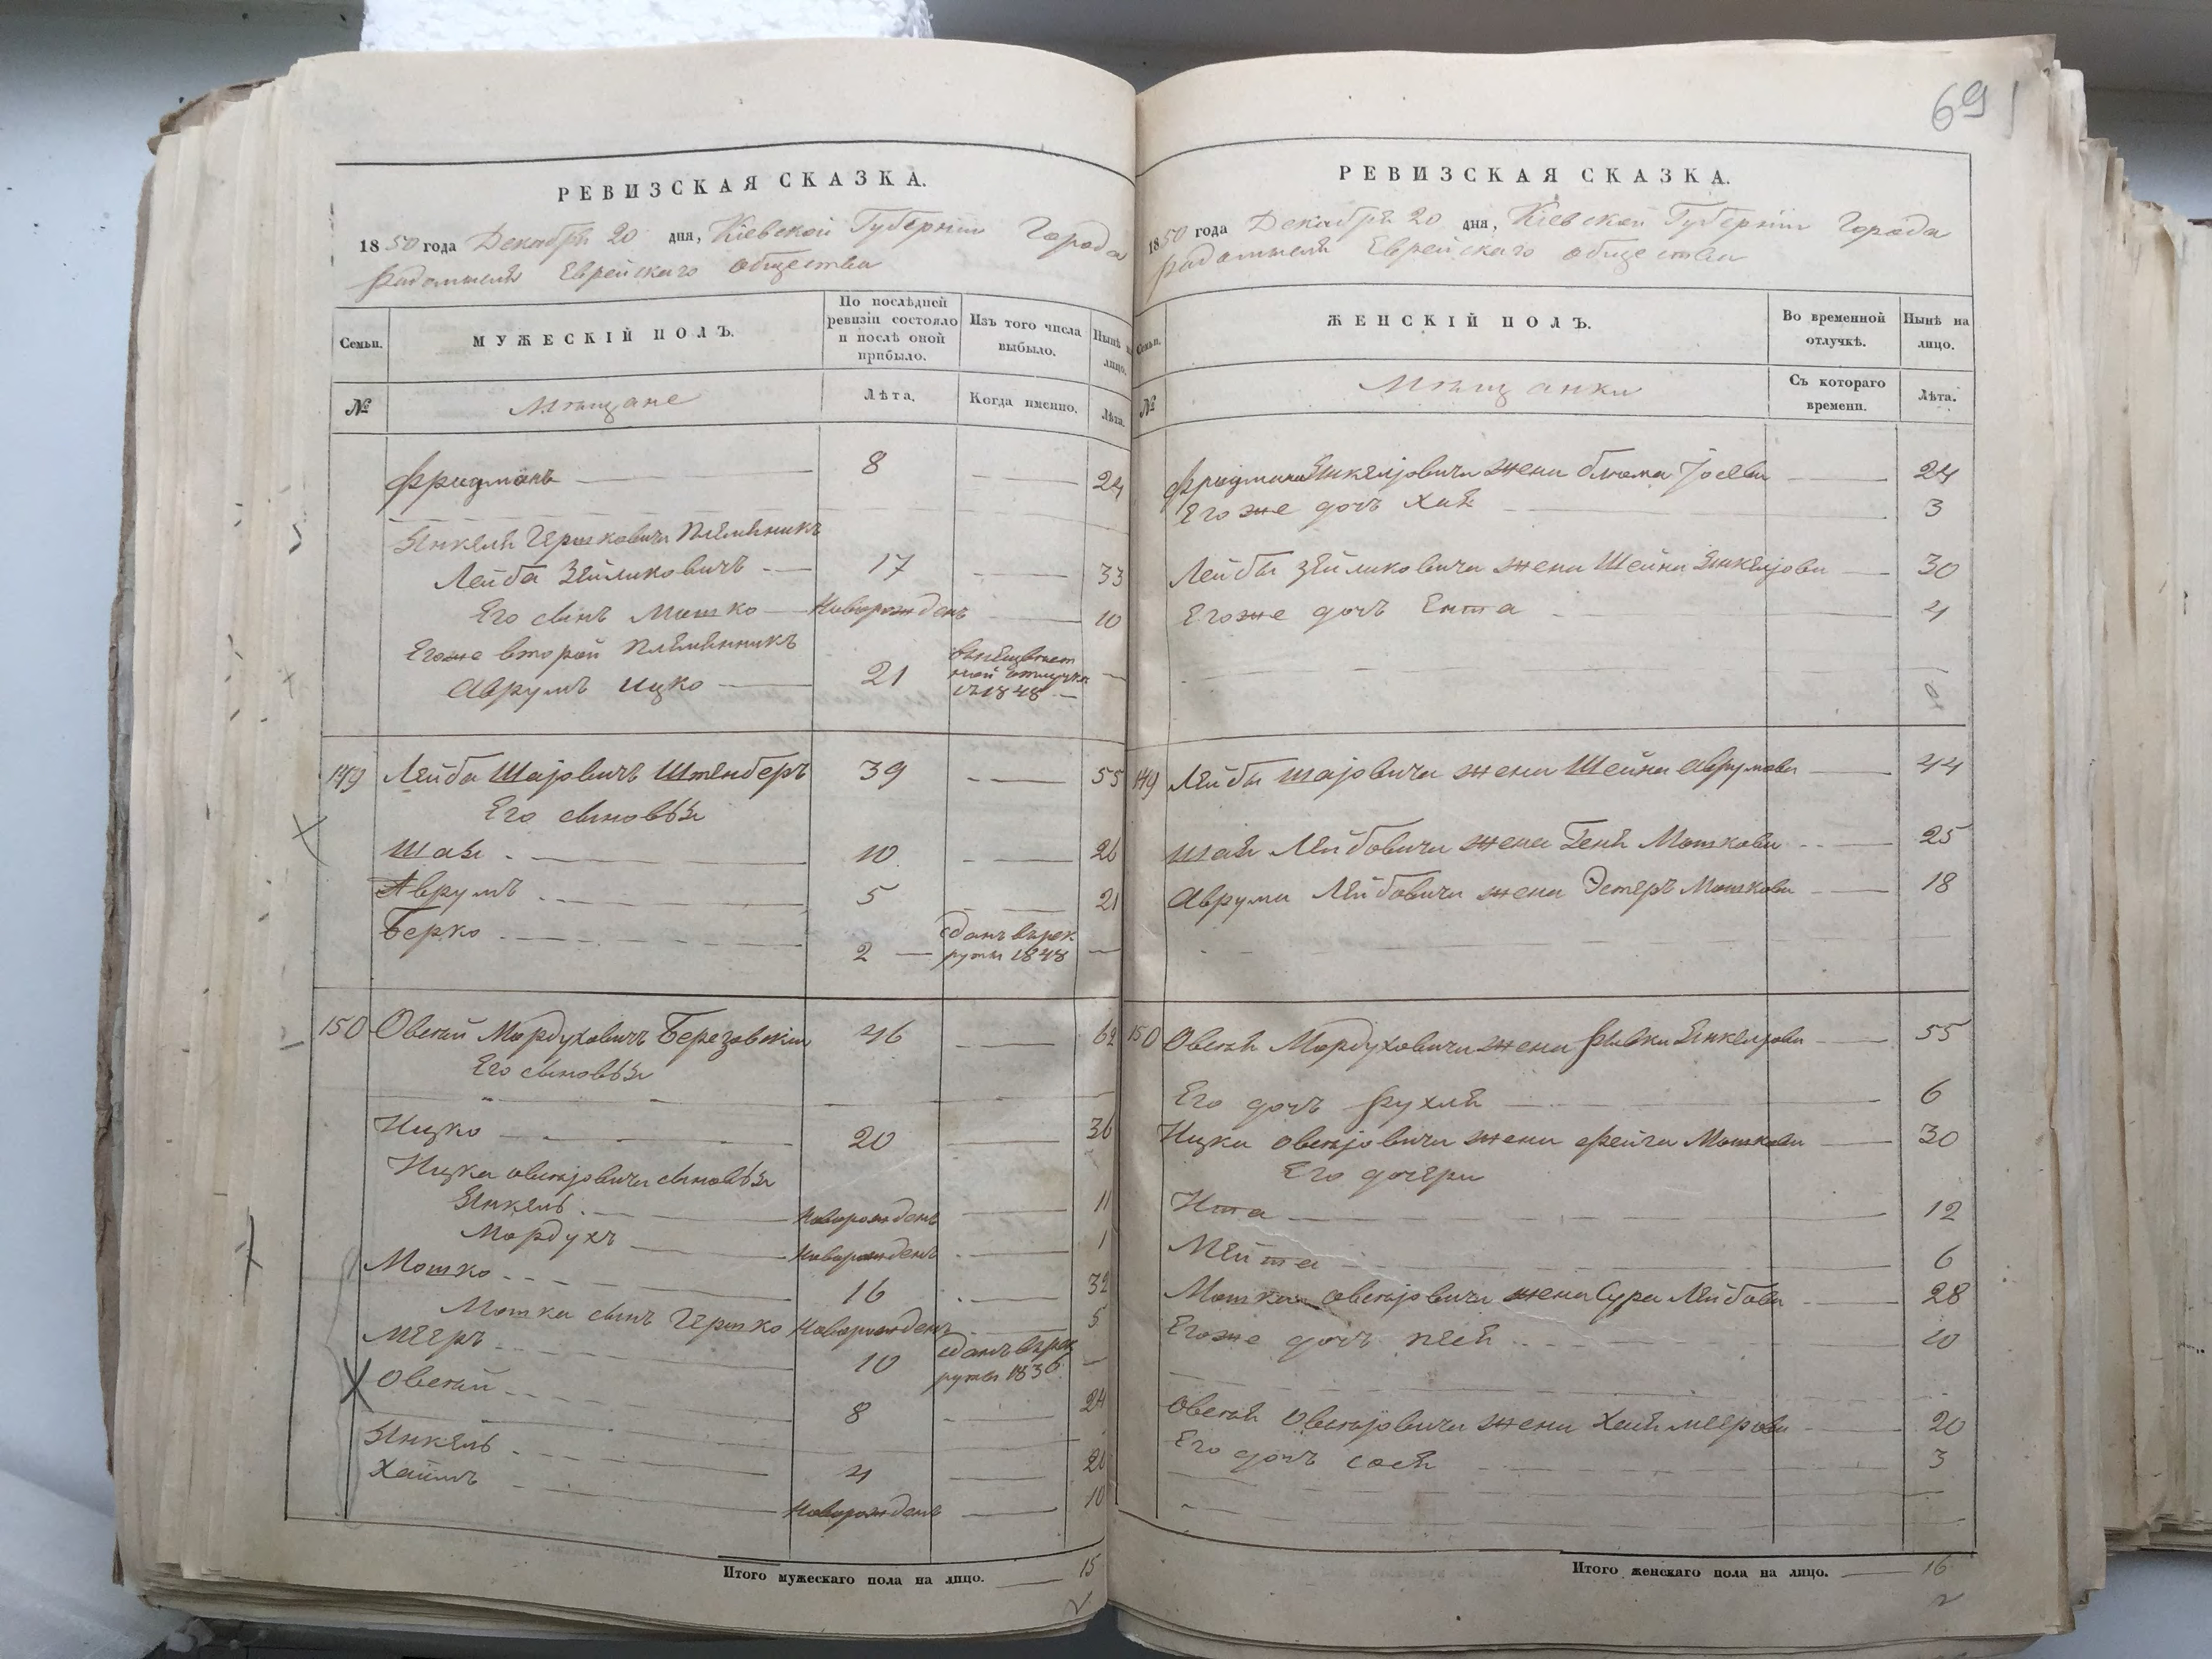 69
РЕВИЗСКАЯ СКАЗКА.
1850 года Декабря 20 дня, Кіевской Губерніи Города
Радомысля Еврейскаго общества
Семьи.
МУЖЕСКІЙ ПОЛЪ.
По послѣдней ревизіи состояло и послѣ оной прибыло.
Изъ того числа выбыло.
Нынѣ на лицо.
№
Мѣщане
Лѣта.
Когда именно.
Лѣта.
Фридманъ 8 24
Янкеля Гершковича Племянникъ
Лейба Зейликовичъ 17 33
Его сынъ Мошко Новорожденъ 10
Егоже второй Племянникъ
Аврумъ Ицко 21 въ неизвѣстной отлучкѣ съ 1848
149 Лейба Шаіовичъ Штенберъ 39 55
Его сыновья
Шая 10 26
Аврумъ 5 21
Берко 2 сданъ въ рекруты 1848
150 Овсей Мордуховичъ Березовскій 46 62
Его сыновья
Ицко 20 36
Ицка Овсеіовича сыновья
Янкель Новорожденъ 11
Мордухъ Новорожденъ 1
Мошко 16 32
Мошка сынъ Гершко Новорожденъ 5
Мееръ 10 сданъ въ рекруты 1836
Овсей 8 24
Янкель 4 20
Хаимъ Новорожденъ 10
Итого мужескаго пола на лицо. 15
РЕВИЗСКАЯ СКАЗКА.
1850 года Декабря 20 дня, Кіевской Губерніи Города
Радомысля Еврейскаго общества
Семьи.
ЖЕНСКІЙ ПОЛЪ.
Во временной отлучкѣ.
Нынѣ на лицо.
№
Мѣщанки
Съ котораго времени.
Лѣта.
Фридмана Янкеліовича жена Блюма Іосева 24
Егоже дочь Хая 3
Лейбы Зейликовича жена Шейна Янкеліова 30
Егоже дочь Ента 4
149 Лейбы Шаіовича жена Шейна Аврумова 44
Шаи Лейбовича жена Геня Мошкова 25
Аврума Лейбовича жена Эстеръ Мошкова 18
150 Овсея Мордуховича жена Ривка Янкеліова 55
Его дочь Рухля 6
Ицка Овсеіовича жена Фейга Мошкова 30
Его дочери
Ита 12
Мейта 6
Мошка Овсеіовича жена Сура Лейбова 28
Егоже дочь Песя 10
Овсея Овсеіовича жена Хая Меерова 20
Его дочь Сося 3
Итого женскаго пола на лицо. 16